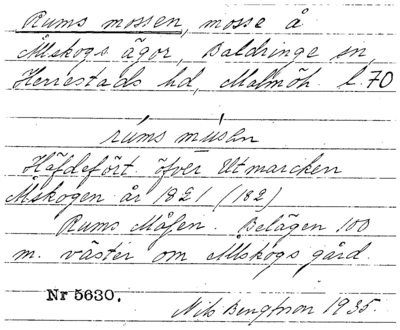 Rums mossen, mosse å
Ållskogs ägor, Baldringe sn,
Herrestads hd, Malmöh. l. 70
rúms músen
Häfdefört öfver Utmarcken
Ållskogen år 1821 (182)
Rums Måsen. Belägen 100
m. väster om Ållskogs gård.
Nr 5630.
Nils Bengtsson 1935.